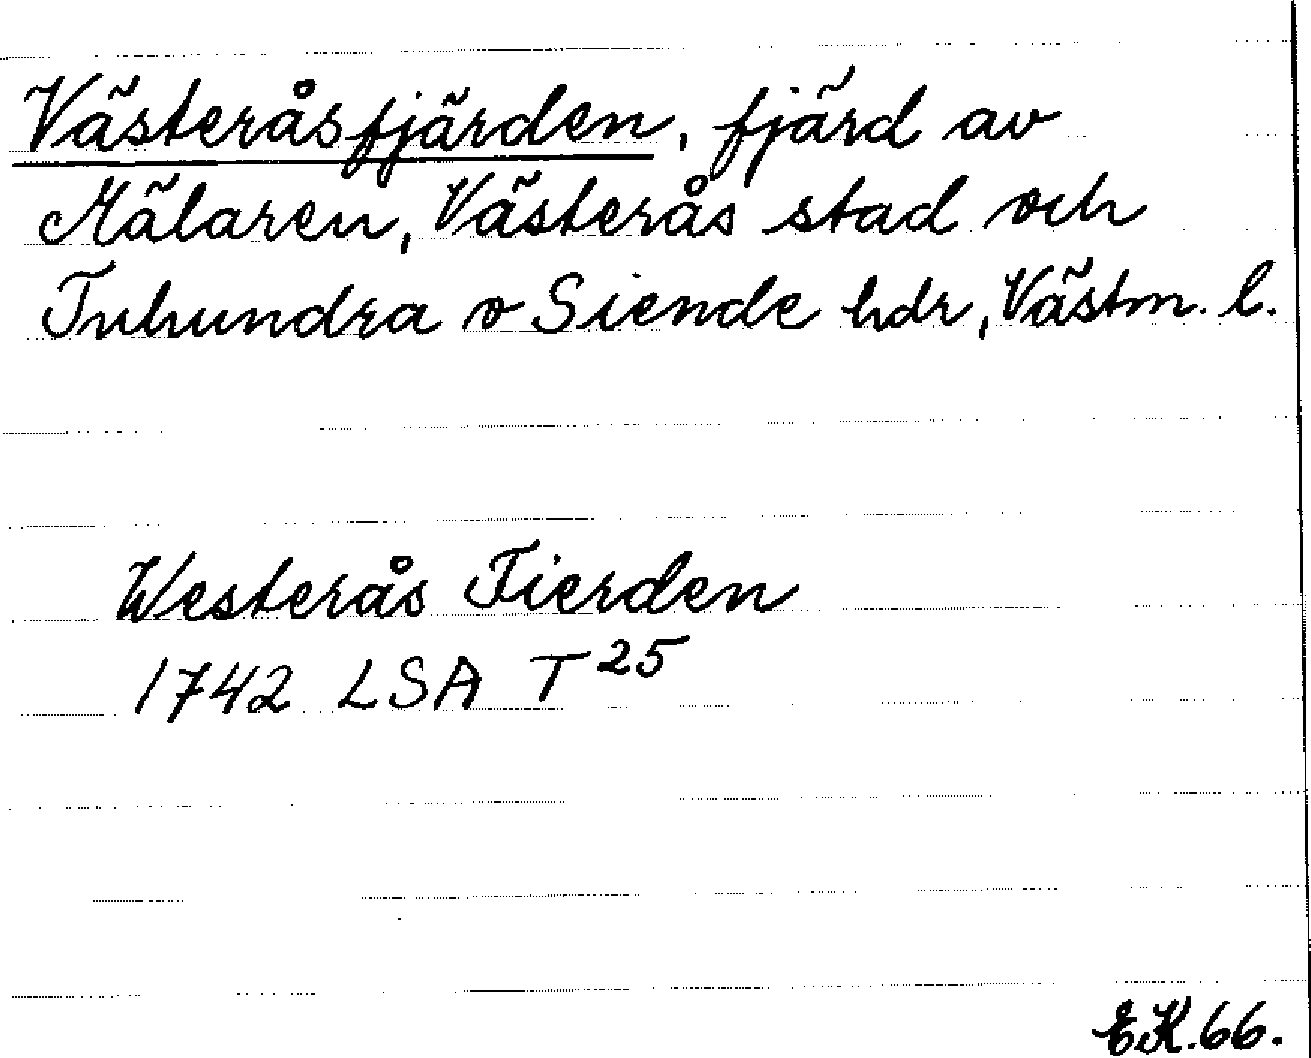 Västeråsfjärden, fjärd av
Mälaren, Västerås stad och
Tuhundra o Siende hdr, Västm. l.
Westerås Fierden
1742 LSA T 25
EK. 66.